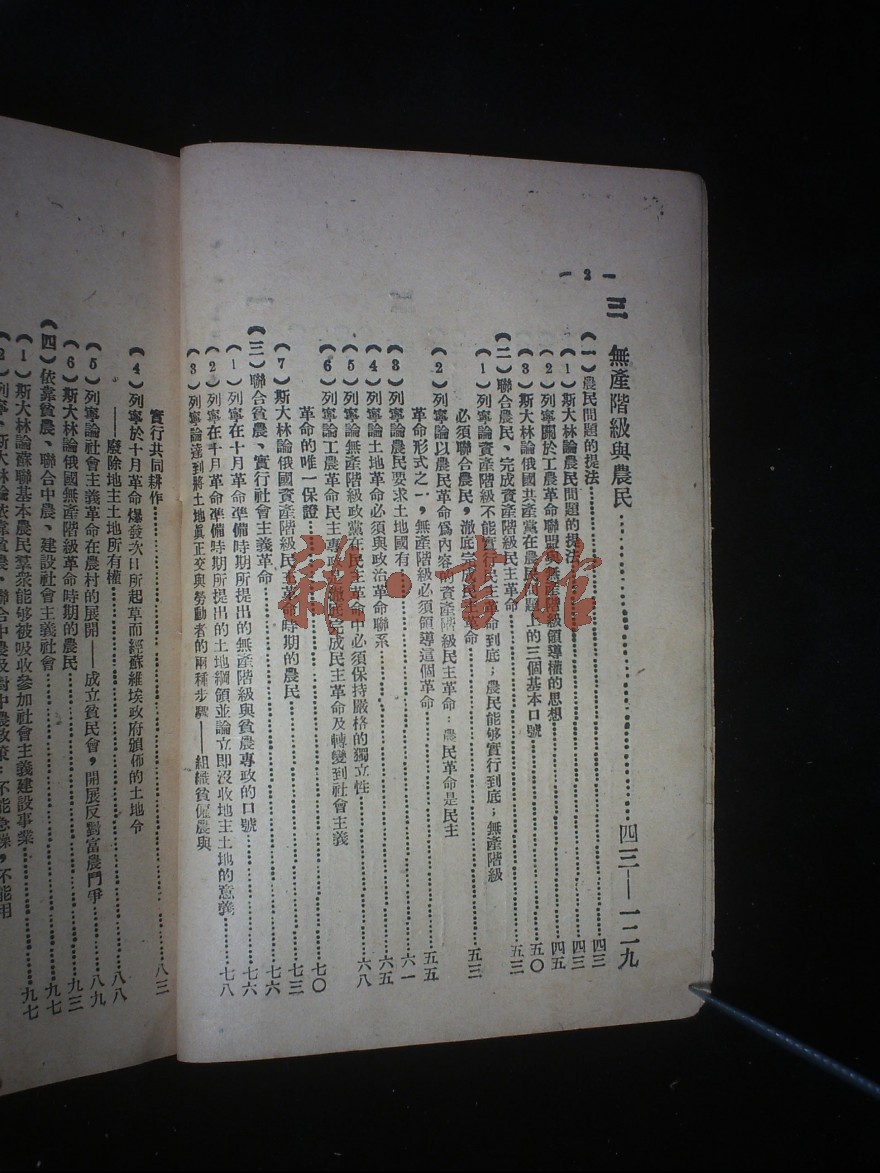 — 2 —
三 無產階級與農民……四三—一二九
(一)農民問題的提法……四三
(1)斯大林論農民問題的提法……四三
(2)列寧關於工農革命聯盟與無產階級領導權的思想……四五
(3)斯大林論俄國共產黨在農民問題上的三個基本口號……五〇
(二)聯合農民、完成資產階級民主革命……五三
(1)列寧論資產階級不能實行民主革命到底;農民能够實行到底;無產階級
必須聯合農民,澈底完成民主革命……五三
(2)列寧論以農民革命爲內容的資產階級民主革命:農民革命是民主
革命形式之一,無產階級必須領導這個革命……五五
(3)列寧論農民要求土地國有……六一
(4)列寧論土地革命必須與政治革命聯系……六五
(5)列寧論無產階級政黨在民主革命中必須保持嚴格的獨立性……六八
(6)列寧論工農革命民主專政是澈底完成民主革命及轉變到社會主義
革命的唯一保證……七〇
(7)斯大林論俄國資產階級民主革命時期的農民……七三
(三)聯合貧農、實行社會主義革命……七六
(1)列寧在十月革命準備時期所提出的無產階級與貧農專政的口號……七六
(2)列寧在十月革命準備時期所提出的土地綱領並論立即沒收地主土地的意義……七八
(3)列寧論達到將土地眞正交與勞動者的兩種步驟——組織貧僱農與
實行共同耕作……八三
(4)列寧於十月革命爆發次日所起草而經蘇維埃政府頒佈的土地令
——廢除地主土地所有權……八八
(5)列寧論社會主義革命在農村的展開——成立貧民會,開展反對富農鬥爭……八九
(6)斯大林論俄國無產階級革命時期的農民……九三
(四)依靠貧農、聯合中農、建設社會主義社會……九七
(1)斯大林論蘇聯基本農民羣衆能够被吸收參加社會主義建設事業……九七
(2)列寧、斯大林論依靠貧農、聯合中農及對中農政策:不能急躁,不能用
雜·書館